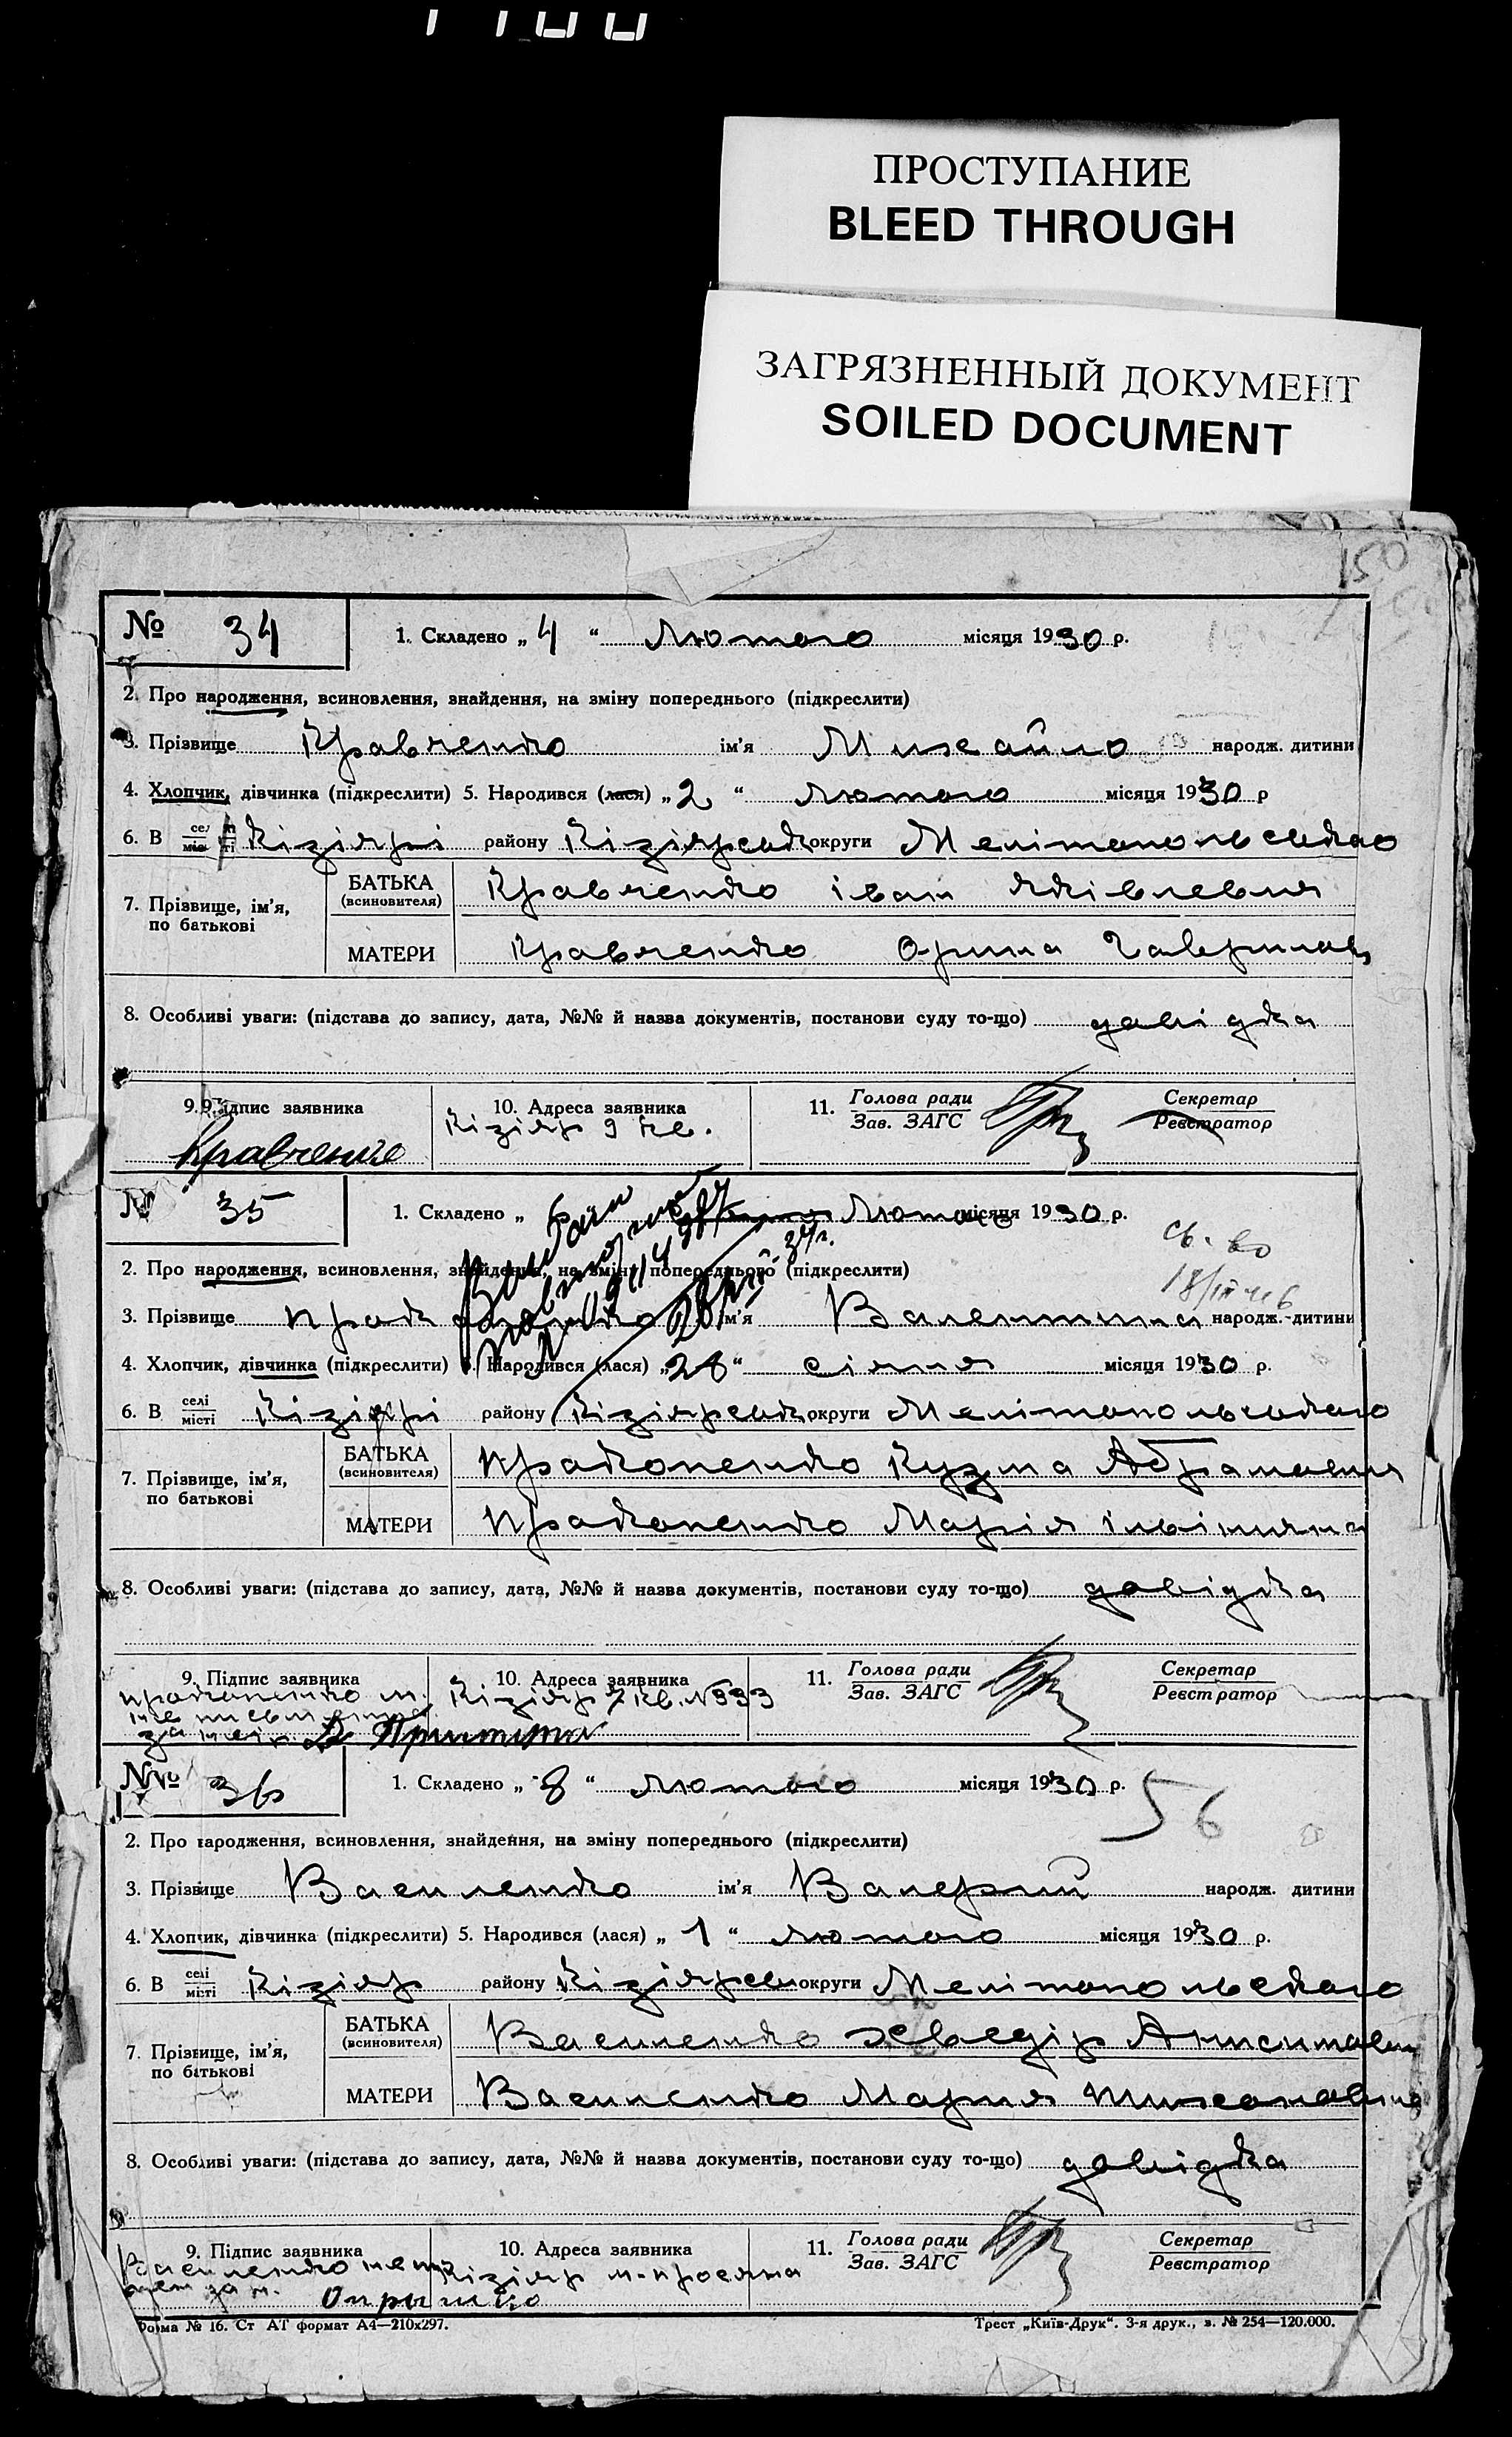 ПРОСТУПАНИЕ
BLEED THROUGH
ЗАГРЯЗНЕННЫЙ ДОКУМЕНТ
SOILED DOCUMENT
150
№ 34
1. Складено „ 4 “ Лютого місяця 1930 р.
2. Про народження, всиновлення, знайдення, на зміну попереднього (підкреслити)
3. Прізвище Кравченко ім'я Михайло народж. дитини
4. Хлопчик, дівчинка (підкреслити) 5. Народився (лася) „ 2 “ Лютого місяця 1930 р
6. В Кізіярі району Кізіярськ округи Мелітопольського
7. Прізвище, ім'я, по батькові
БАТЬКА (всиновителя) Кравченко Іван Яківлевич
МАТЕРИ Кравченко Орина Гаврилов
8. Особливі уваги: (підстава до запису, дата, №№ й назва документів, постанови суду то-що) довідка
9. Підпис заявника 10. Адреса заявника 11. Голова ради Зав. ЗАГС Секретар Реєстратор
Кравченко Кізіяр 9 кв.
№ 35
1. Складено „ Лютого місяця 1930 р.
св-во
2. Про народження, всиновлення, знайдення, на зміну попереднього (підкреслити)
3. Прізвище ім'я Валентина народж. дитини
4. Хлопчик, дівчинка (підкреслити) 5. Народився (лася) „ 28 “ січня місяця 1930 р.
6. В селі місті Кізіярі району Кізіярськ округи Мелітопольського
7. Прізвище, ім'я, по батькові
БАТЬКА (всиновителя) Кузма Абрамович
МАТЕРИ Марія
8. Особливі уваги: (підстава до запису, дата, №№ й назва документів, постанови суду то-що) довідка
9. Підпис заявника 10. Адреса заявника 11. Голова ради Зав. ЗАГС Секретар Реєстратор
Кізіяр 7 кв. №993
№ 36
1. Складено „ 8 “ лютого місяця 1930 р.
56
2. Про народження, всиновлення, знайдення, на зміну попереднього (підкреслити)
3. Прізвище Василенко ім'я Валерий народж. дитини
4. Хлопчик, дівчинка (підкреслити) 5. Народився (лася) „ 1 “ лютого місяця 1930 р.
6. В селі місті Кізіяр району Кізіярськ округи Мелітопольського
7. Прізвище, ім'я, по батькові
БАТЬКА (всиновителя) Василенко
МАТЕРИ Василенко Мария
8. Особливі уваги: (підстава до запису, дата, №№ й назва документів, постанови суду то-що) довідка
9. Підпис заявника 10. Адреса заявника 11. Голова ради Зав. ЗАГС Секретар Реєстратор
Василенко Кізіяр
Форма № 16. Ст АТ формат А4—210х297.
Трест „Київ-Друк“. 3-я друк., з. № 254—120.000.